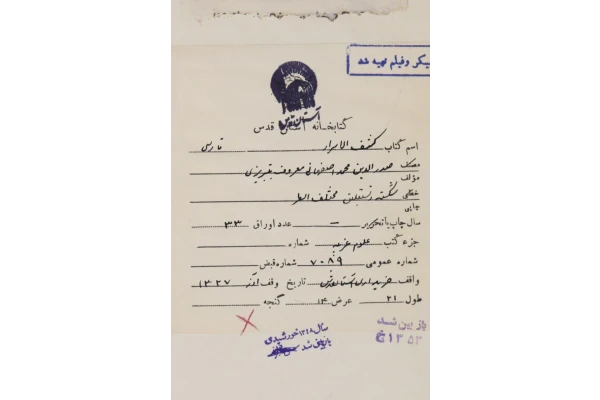 میکروفیلم تهیه شد
آستان قدس
کتابخانه آستان قدس
اسم کتاب کشف الاسرار فارسی
مؤلف صدرالدین محمد اصفهانی معروف بتبریزی
خطی شکسته نستعلیق مختلف السطر
چاپی
سال چاپ یا تحریر – عدد اوراق ۳۳
جزء کتب علوم غریبه شماره
شماره عمومی ۷۰۸۹ شماره قبض
واقف خریداری آستان قدس تاریخ وقف ۱۳۲۷
طول ۲۱ عرض ۱۴ گنجه
سال ۱۳۴۸ خورشیدی
بازبینی شد
باز بین شد
۱۳۵۳ خ